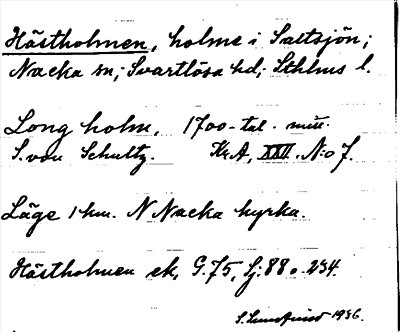 Hästholmen, holme i Saltsjön;
Nacka sn; Svartlösa hd; Sthlms l.
Long holm, 1700-tal.
S. von Schultz. Kr.A, XXII. N:o 7.
Läge 1 km. N Nacka kyrka.
Hästholmen ek, G.75, Lj:88 o. 234.
S. 1936.